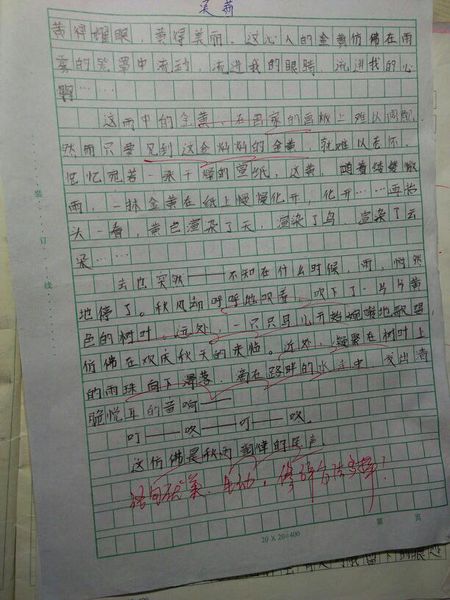 黄得耀眼，黄得美丽。这沁人的金黄仿佛在雨
雾的笼罩中流动，流进我的眼睛，流进我的心
里……
这雨中的金黄，在画家的画板上难以调成，
然而只要见到这金灿灿的金黄，就难以忘怀。
记忆宛若一张干燥的宣纸，这黄，随着绵绵微
雨，一抹金黄在纸上慢慢化开，化开……再抬
头一看，黄已渲染了天，渲染了鸟，渲染了云
朵……
去也突然——不知在什么时候，雨，悄然
地停了。秋风却呼呼地吹着，吹下了一片片黄
色的树叶。远处，一只只鸟儿开始婉转地歌唱，
仿佛在欢庆秋天的来临。近处，凝聚在树叶上
的雨珠向下滑落，滴在路畔的水洼中，发出清
脆悦耳的音响——
叮——咚——叮——咚。
这仿佛是秋雨的尾声。
语句优美、生动，修辞方法多样！
20×20=400
第 页
装 订 线